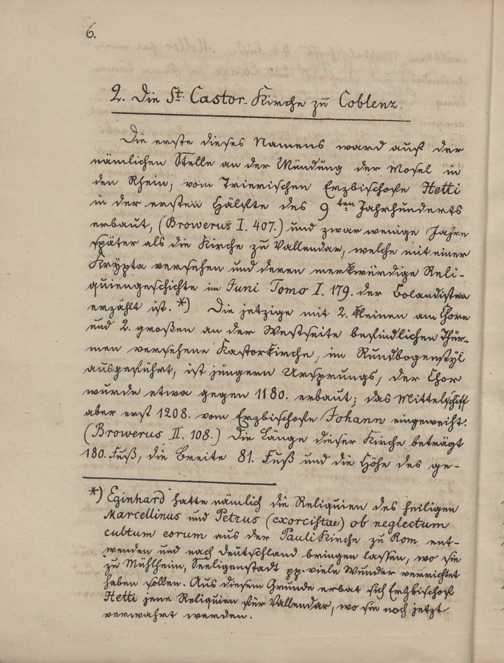 6.
2. Die St. Castor-Kirche zu Coblenz.
Die erste dieses Namens ward auf der
nämlichen Stelle an der Mündung der Mosel in
den Rhein, vom Trierischen Erzbischofe Hetti
in der ersten Hälfte des 9ten Jahrhunderts
erbaut, (Browerus I. 407.) und zwar wenige Jahre
später als die Kirche zu Vallendar, welche mit einer
Krypta versehen und deren merkwürdige Reli-
quiengeschichte im Juni Tomo I. 179. der Bolandisten
erzählt ist. *) Die jetzige mit 2. kleinen am Chore
und 2. großen an der Westseite befindlichen Thür-
men versehene Kastorkirche, im Rundbogenstyl
ausgeführt, ist jüngern Ursprungs, der Chor
wurde etwa gegen 1180. erbaut; das Mittelschiff
aber erst 1208. vom Erzbischofe Johann eingeweiht.
(Browerus II. 108.) Die Länge dieser Kirche beträgt
180. Fuß, die Breite 81. Fuß und die Höhe des ge-
*) Eginhard hatte nämlich die Reliquien des heiligen
Marcellinus und Petrus (exorcistae) ob neglectum
cultum eorum aus der Pauli Kirche zu Rom ent-
wenden und nach Deutschland bringen lassen, wo sie
zu Mühlheim, Seeligenstadt pp. viele Wunder verrichtet
haben sollen. Aus diesem Grunde erbat sich Erzbischof
Hetti jene Reliquien für Vallendar, wo sie noch jetzt
verwahrt werden.